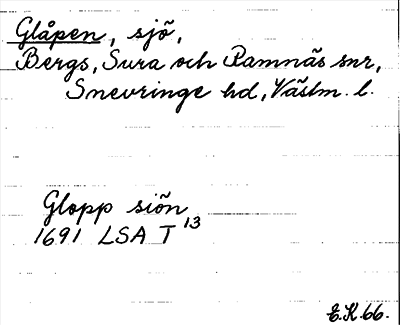 Glåpen, sjö,
Bergs, Sura och Ramnäs snr,
Snevringe hd, Västm. l.
Glopp siön
1691 LSA T 13
E.K. 66.